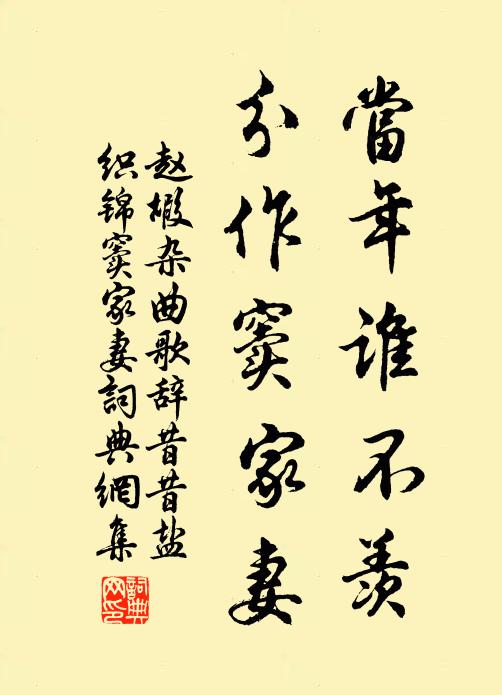 當年誰不羨
分作竇家妻
赵嘏杂曲歌辞昔昔盐
织锦窦家妻詞典網集
詞典網印